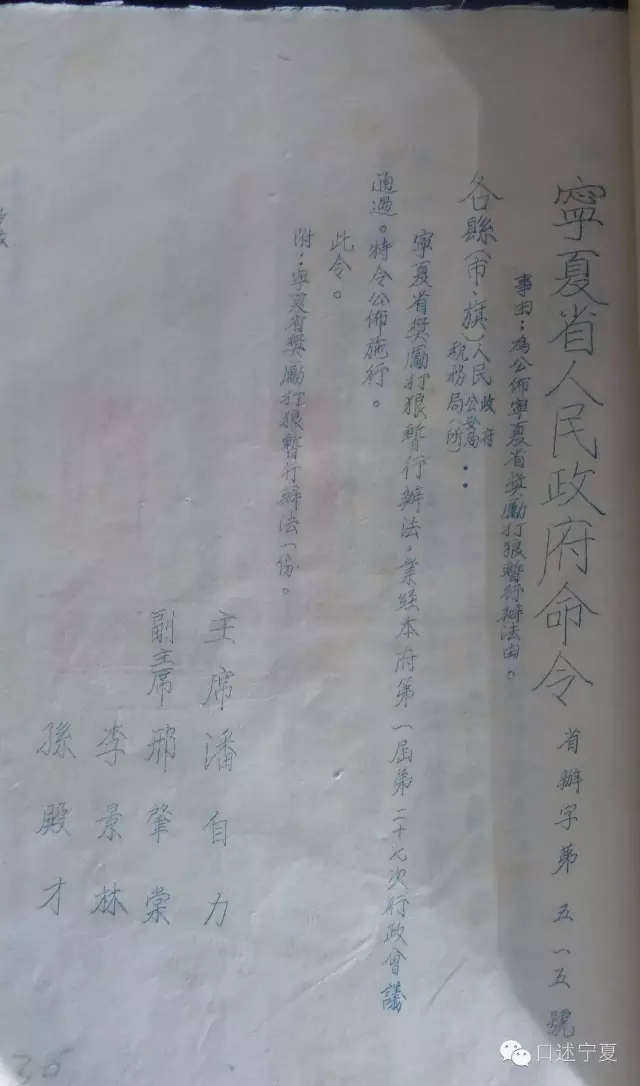 寧夏省人民政府命令 省辦字第五一五號
事由：為公佈寧夏省獎勵打狼暫行辦法由。
各縣（市、旗）人民政府 公安局 稅務局（所）：
寧夏省獎勵打狼暫行辦法，業经本府第一屆第二十九次行政會議
通過。特令公佈施行。
此令。
附：寧夏省獎勵打狼暫行辦法一份。
主席 潘自力
副主席 邢肇棠
李景林
孫殿才
36
口述宁夏